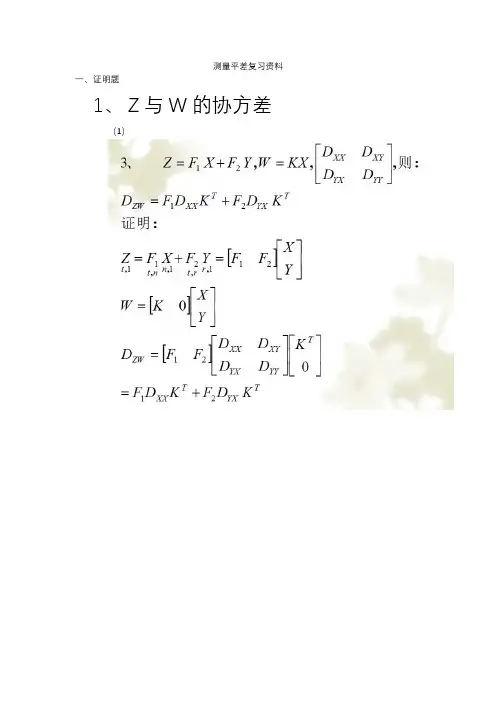 测量平差复习资料
一、证明题
1、Z与W的协方差
(1)
3、 Z = F₁X + F₂Y, W = KX, [D_XX D_XY; D_YX D_YY], 则:
D_ZW = F₁D_XX K^T + F₂D_YX K^T
证明:
Z_{t,1} = F₁_{t,n} X_{n,1} + F₂_{t,r} Y_{r,1} = [F₁ F₂][X; Y]
W = [K 0][X; Y]
D_ZW = [F₁ F₂][D_XX D_XY; D_YX D_YY][K^T; 0]
= F₁D_XX K^T + F₂D_YX K^T